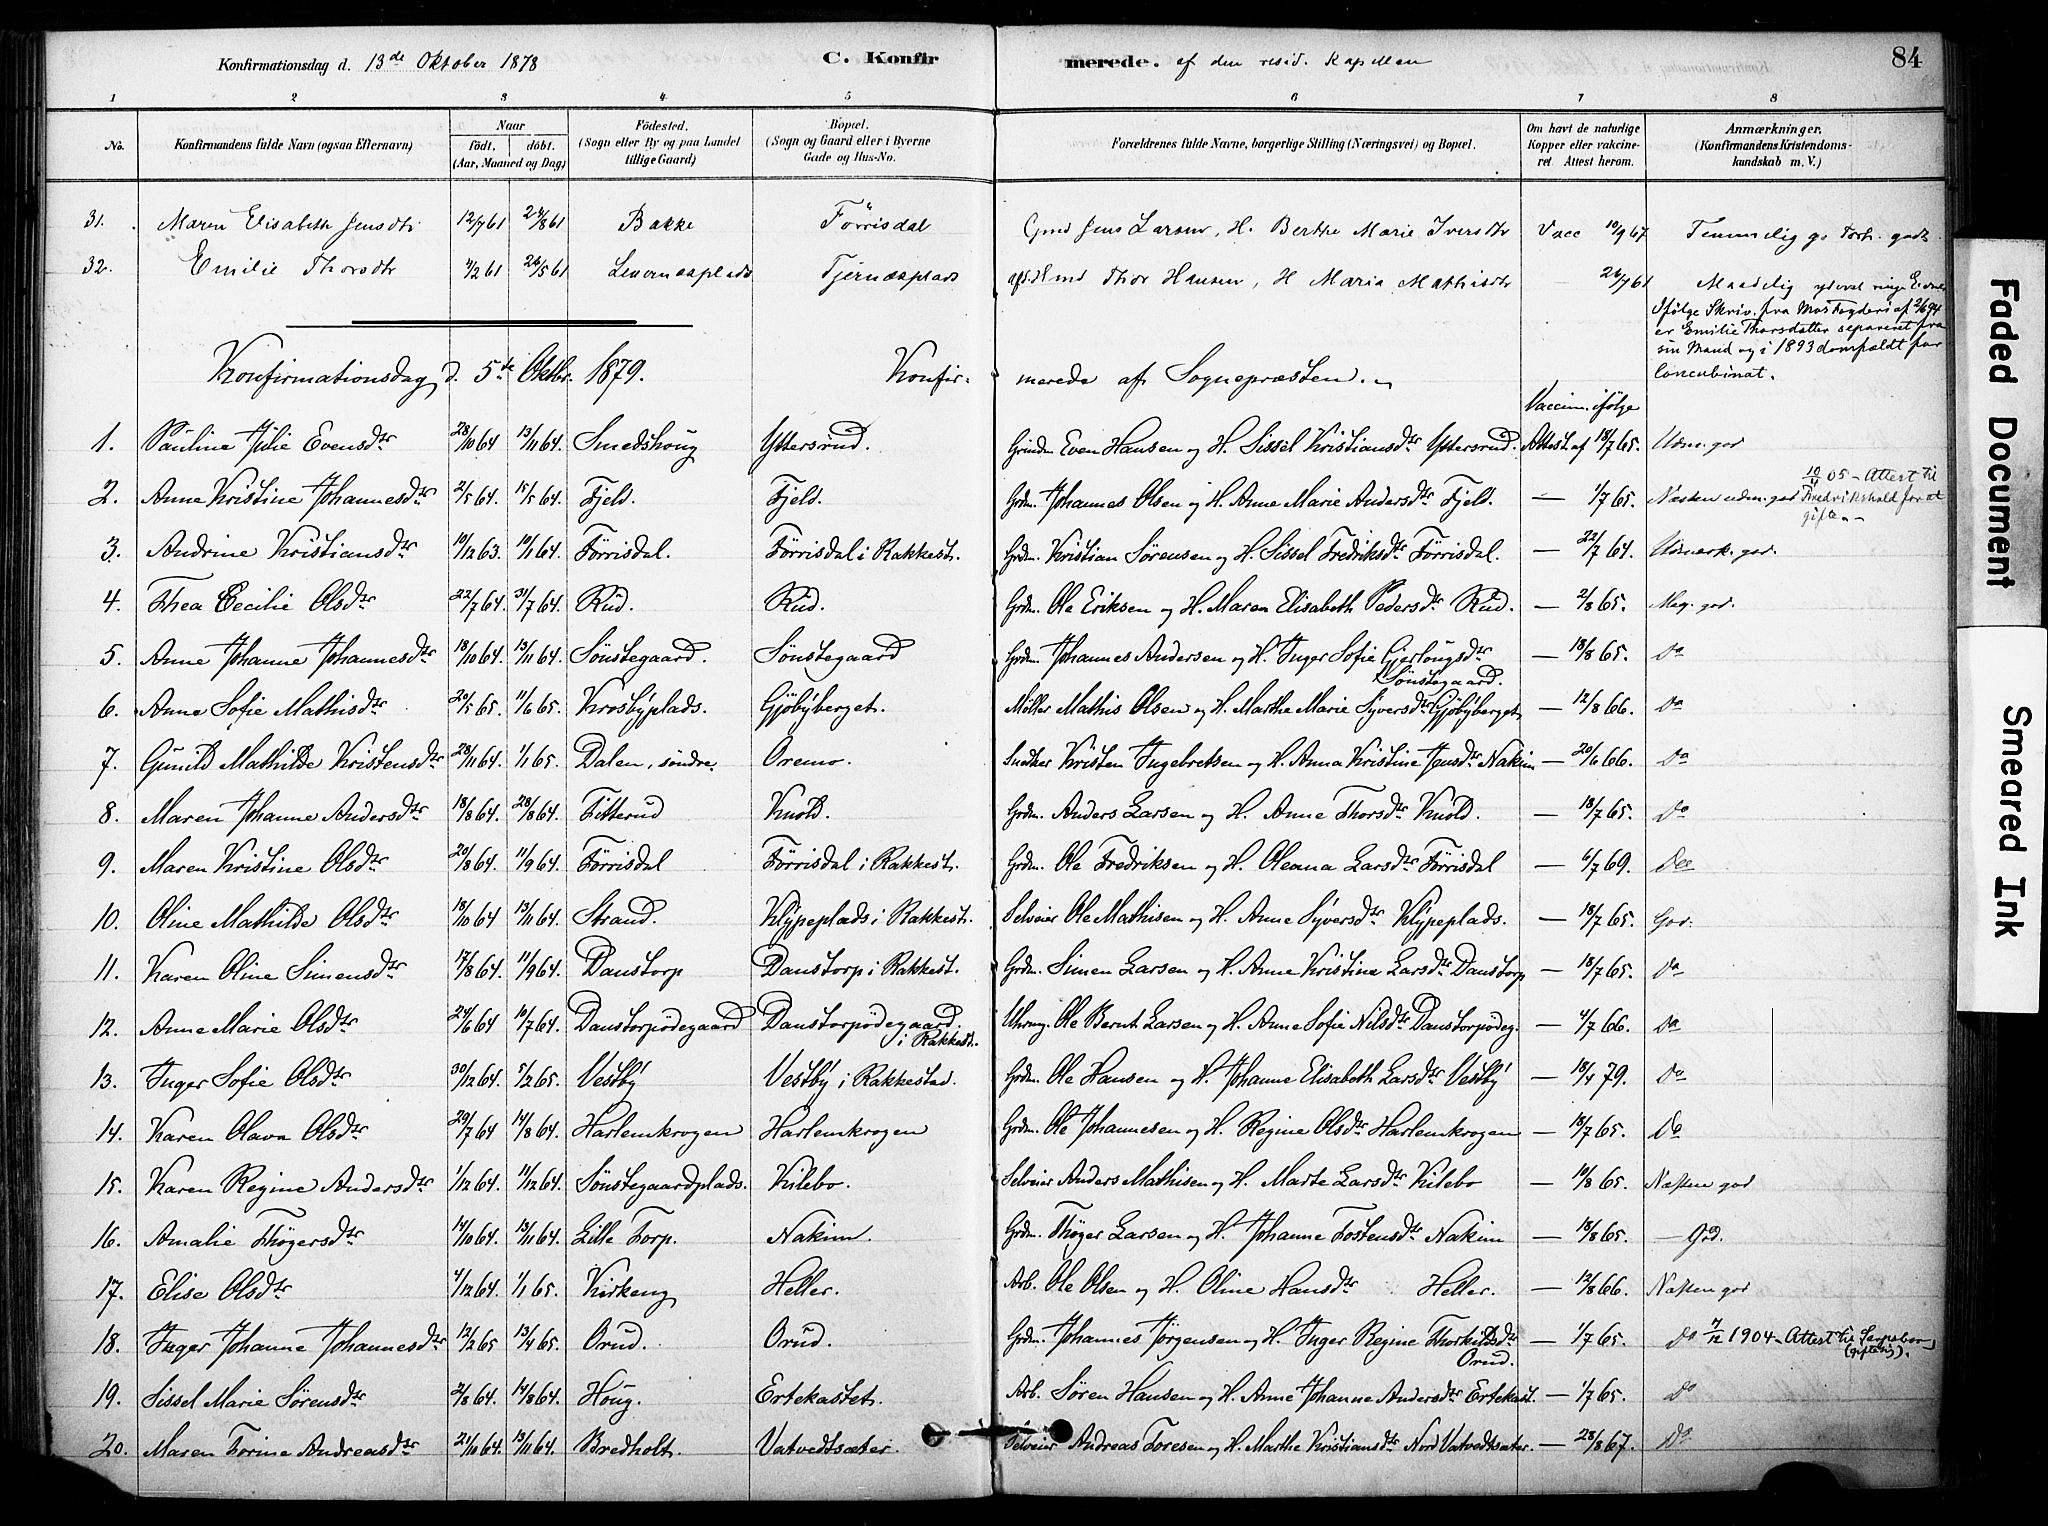 Konfirmationsdag d. 13de Oktober 1878 C. Konfir merede. af den resid. Kapellan 84
1 2 3 4 5 6 7 8
No. Konfirmandens fulde Navn (ogsaa Efternavn) Naar født. døbt. (Aar, Maaned og Dag) Fødested. (Sogn eller By og paa Landet tillige Gaard) Bopæl. (Sogn og Gaard eller i Byerne Gade og Hus-No. Forældrenes fulde Navne, borgerlige Stilling (Næringsvei) og Bopæl. Om havt de naturlige Kopper eller vakcineret. Attest herom. Anmærkninger. (Konfirmandens Kristendomskundskab m. V.)
31. Maren Elisabeth Jensdtr 12/7 61 24/8 61 Bakke Förrisdal Gmd Jens Larsen, H. Berthe Marie Iversdtr Vacc 10/9 67 Temmelig g. Forh. godt
32. Emilie Thorsdtr 4/2 61 26/5 61 Levernæsplads Tjernæsplads Thor Hansen, H Maria Mathisdtr 26/7 61 Maadelig
Ifølge Skriv. fra af 2/6 94
er Emilie Thorsdatter separeret fra
sin Mand og i 1893 domfældt for
Concubinat.
Konfirmationsdag d. 5te Oktbr. 1879. Konfir- merede af Sognepræsten.
Vaccin. ifølge
1. Pauline Julie Evensdtr 28/10 64 13/11 64. Smedshoug Yttersrud. Grdm Even Hansen og H. Sissel Kristiansdtr Yttersrud. Attest af 18/7 65. Udm. god
2. Anne Kristine Johannesdtr 2/5 64. 15/5 64. Fjeld. Fjeld. Grdm. Johannes Olsen og H. Anne Marie Andersdtr Fjeld. — 1/7 65. Næsten udm. god 10/4 05 - Attest til Fredrikshald for at gifte
3. Andrine Kristiansdtr 10/12 63. 10/1 64. Förrisdal. Förrisdal i Rakkest. Grdm. Kristian Sørensen og H. Sissel Fredriksdtr Förrisdal. — 22/7 64. Udmærk. god.
4. Thea Cecilie Olsdtr 22/7 64. 31/7 64. Rud. Rud. Grdm. Ole Eriksen og H. Maren Elisabeth Pedersdtr Rud. — 2/8 65. Meg. god.
5. Anne Johanne Johannesdtr 18/10 64. 13/11 64. Sönstegaard. Sönstegaard Grdm. Johannes Andersen og H. Inger Sofie Gjerlougsdtr Sönstegaard. — 18/8 65. Do
6. Anne Sofie Mathisdtr 20/5 65. 11/6 65. Krosbyplads. Gjöbyberget. Møller Mathis Olsen og H. Marthe Marie Syversdtr Gjöbyberget — 12/8 66. Do
7. Gunild Mathilde Kristensdtr 28/11 64. 1/1 65. Dalen, söndre. Oremo. Snedker Kristen Ingebretsen og H. Anna Kristine Jensdtr Nakim — 20/6 66. Do
8. Maren Johanne Andersdtr 18/8 64. 28/8 64. Titterud Knold. Grdm. Anders Larsen og H. Anne Thorsdtr Knold. — 18/7 65. Do
9. Maren Kristine Olsdtr 20/8 64. 11/9 64. Förrisdal Förrisdal i Rakkest. Grdm. Ole Fredriksen og H. Oleana Larsdtr Förrisdal — 6/7 69. Do
10. Oline Mathilde Olsdtr 18/10 64 13/11 64. Strand. Klypeplads i Rakkest. Selveier Ole Mathisen og H. Anne Syversdtr Klypeplads. — 18/7 65. God.
11. Karen Oline Simensdtr 17/8 64. 11/9 64. Danstorp Danstorp i Rakkest. Grdm. Simen Larsen og H. Anne Kristine Larsdtr Danstorp — 18/7 65. Do
12. Anne Marie Olsdtr 24/6 64 10/7 64. Danstorpödegaard Danstorpödegaard. i Rakkest. Ole Bernt Larsen og H. Anne Sofie Nilsdtr Danstorpödeg. — 4/7 66. Do
13. Inger Sofie Olsdtr 30/12 64. 5/2 65. Vestby Vestby i Rakkestad. Grdm. Ole Hansen og H. Johanne Elisabeth Larsdtr Vestby — 18/4 79. Do
14. Karen Olava Olsdtr 20/7 64 14/8 64. Harlemkrogen Harlemkrogen Grdm. Ole Johannesen og H. Regine Olsdtr Harlemkrogen — 18/7 65. Do
15. Karen Regine Andersdtr 1/12 64. 11/12 64. Sönstegaardplads. Kilebo. Selveier Anders Mathisen og H. Marte Larsdtr Kilebo — 10/8 65. Næsten god
16. Amalie Thøgersdtr 14/10 64. 13/11 64. Lille Torp. Nakim. Grdm. Thøger Larsen og H. Johanne Tostensdtr Nakim — 18/8 65. — God.
17. Elise Olsdtr 4/12 64. 1/1 65. Kirkeng Heller. Arb. Ole Olsen og H. Oline Hansdtr Heller. — 12/8 66. Næsten god
18. Inger Johanne Johannesdtr 12/2 65 13/4 65. Orud. Orud. Grdm. Johannes Jørgensen og H. Inger Regine Thorkildsdtr Orud. — 1/7 65. Do 7/12 1904 - Attest til Sarpsborg (gifte sig).
19. Sissel Marie Sørensdtr 2/8 64. 14/8 64. Houg. Ertekastet. Arb. Søren Hansen og H. Anne Johanne Andersdtr Ertekast. — 1/7 65. Do
20. Maren Torine Andreasdtr 21/10 64. 13/11 64. Bredholt. Vatvedtsæter. Selveier Andreas Toresen og H. Marthe Kristiansdtr Nord Vatvedtsæter — 28/8 67. Do
Faded Document
Smeared Ink